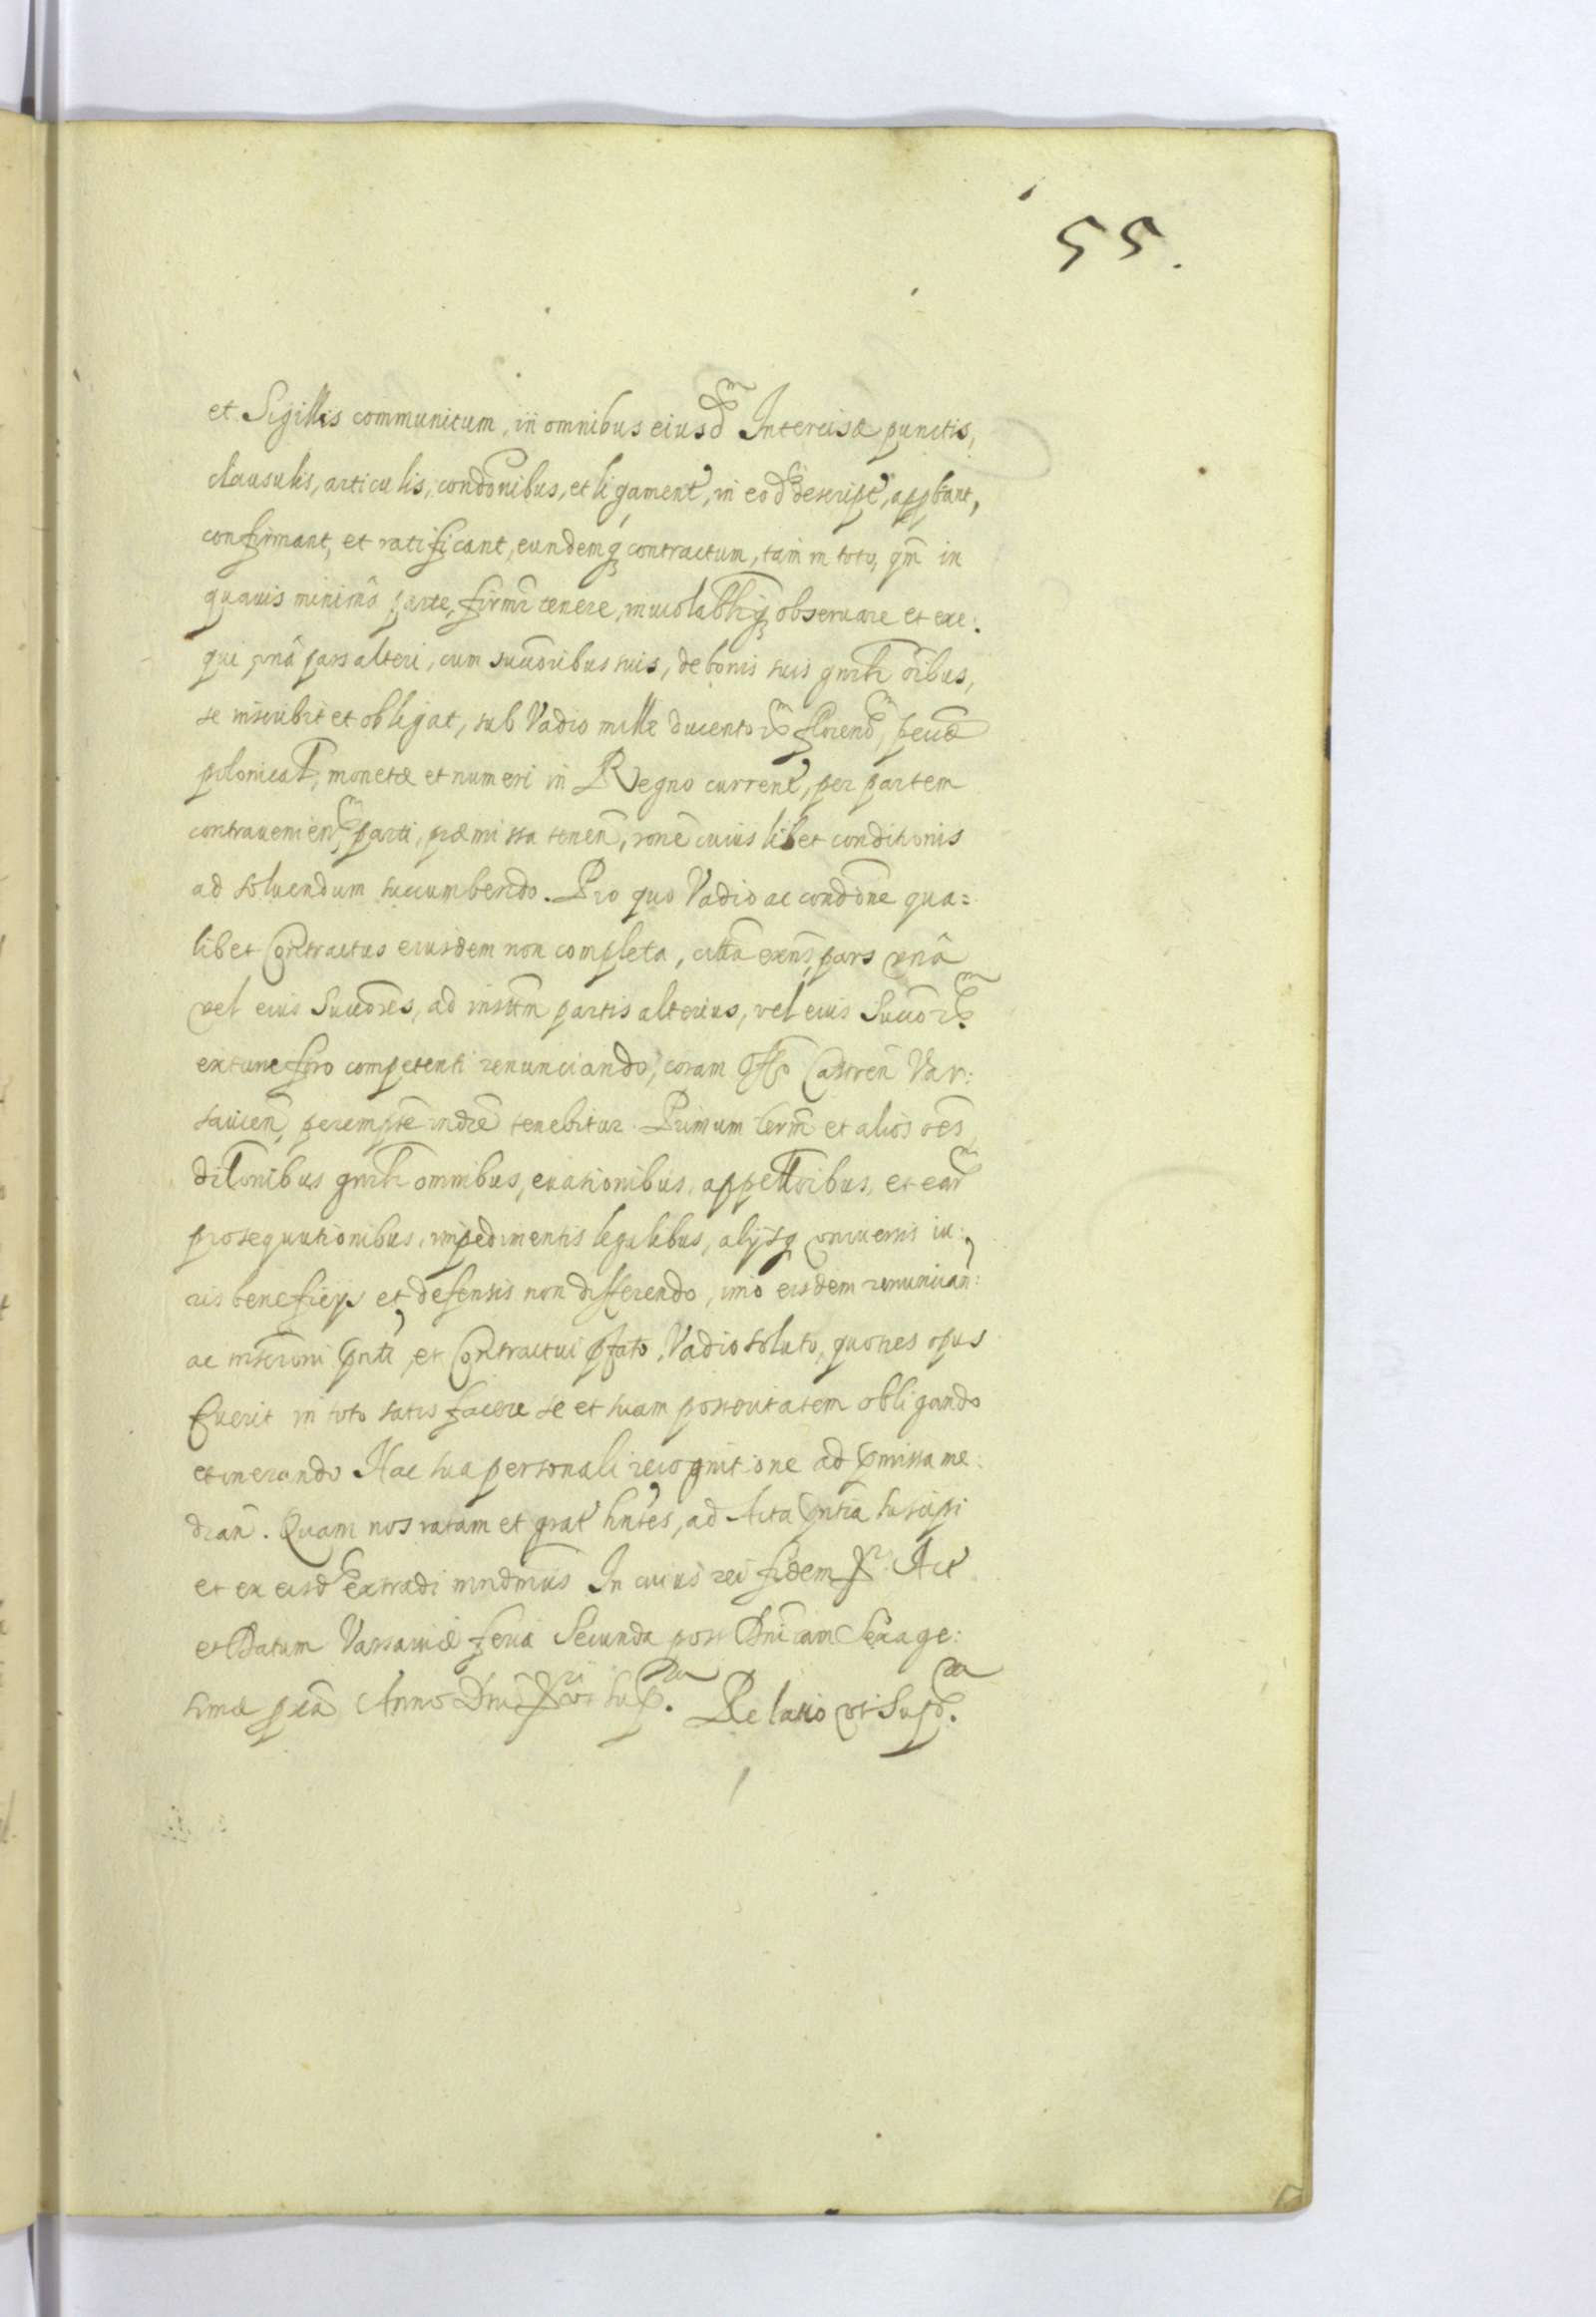 55.
et Sigillis communitum, in omnibus eiusdem Intercisæ punctis,
clausulis, articulis, condonibus, et ligament, in eod descript, appbant,
confirmant, et ratificant, eundemq contractum, tam in toto, qm in
quauis minima parte, firmr tenere, inuiolabliq obseruare et exe:
qui vna pars alteri, cum succoribus suis, de bonis suis gnrlr oibus,
se inscribit et obligat, sub Vadio mille ducentor florenor, pecuæ
polonical, monetæ et numeri in Regno current, per partem
contrauenien, parti, præmissa tenen, rone cuius libet conditionis
ad soluendum succumbendo. Pro quo Vadio ac condone qua=
libet Contractus eiusdem non completa, citta exns, pars vna
vel eius Succores, ad instm partis alterius, vel eius Succor
extunc foro competenti renunciando, coram Offo Castren Var:
sauien, perempte indre tenebitur. Primum term et alios oes
dilonibus gnrlr omnibus, euasionibus, appelloibus, et ear
prosequutionibus, impedimentis legalibus, alijsq vniuersis iu:
ris beneficijs et defensis non differendo, imo eisdem renuncian:
ac inscroni pnti, et Contractui pfato, Vadio soluto, quoties opus
fuerit in toto satis facere se et suam posteritatem obligando
et onerando Hac sua personali recognitione ad pmissa me:
dian. Quam nos ratam et grat hntes, ad Acta pntia suscipi
et ex eisd extradi mndmus In cuius rei fidem Act
et Datum Varsauiæ feria Secunda post Dnicam Sexage:
simæ pxa Anno Dni supra. Relatio vt Supra.